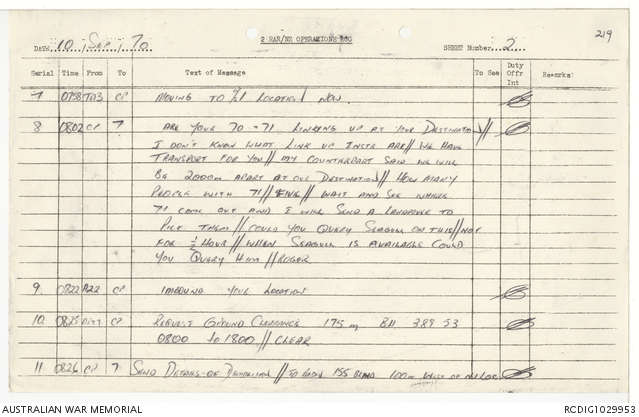 219
2 RAR/NZ OPERATIONS LOG
DATE: 10 / Sep / 70 SHEET Number 2
Serial Time From To Text of Message To See Duty Offr Int Remarks
7 0758 T03 CP MOVING TO LOCATION NOW.
8 0802 CP 7 ARE YOUR 70 + 71 LINKING UP AT YOUR DESTINATION //
I DON'T KNOW WHAT LINK UP INSTR ARE // WE HAVE
TRANSPORT FOR YOU // MY COUNTERPART SAID WE WILL
BE 2000m APART AT OUR DESTINATION // HOW MANY
PEOPLE WITH 71 // FIVE // WAIT AND SEE WHERE
71 COME OUT AND I WILL SEND A LANDROVER TO
PICK THEM // COULD YOU QUERY SEAGULL ON THIS // NOT
FOR ½ HOUR // WHEN SEAGULL IS AVAILABLE COULD
YOU QUERY HIM // ROGER
9 0822 CP INBOUND YOUR LOCATION
10 CP REQUEST GROUND CLEARANCE 175 m 389 53
0800 to 1800 // CLEAR
11 0826 CP 7 SEND DETAILS OF // 155 100m OF
AUSTRALIAN WAR MEMORIAL RCDIG1029953